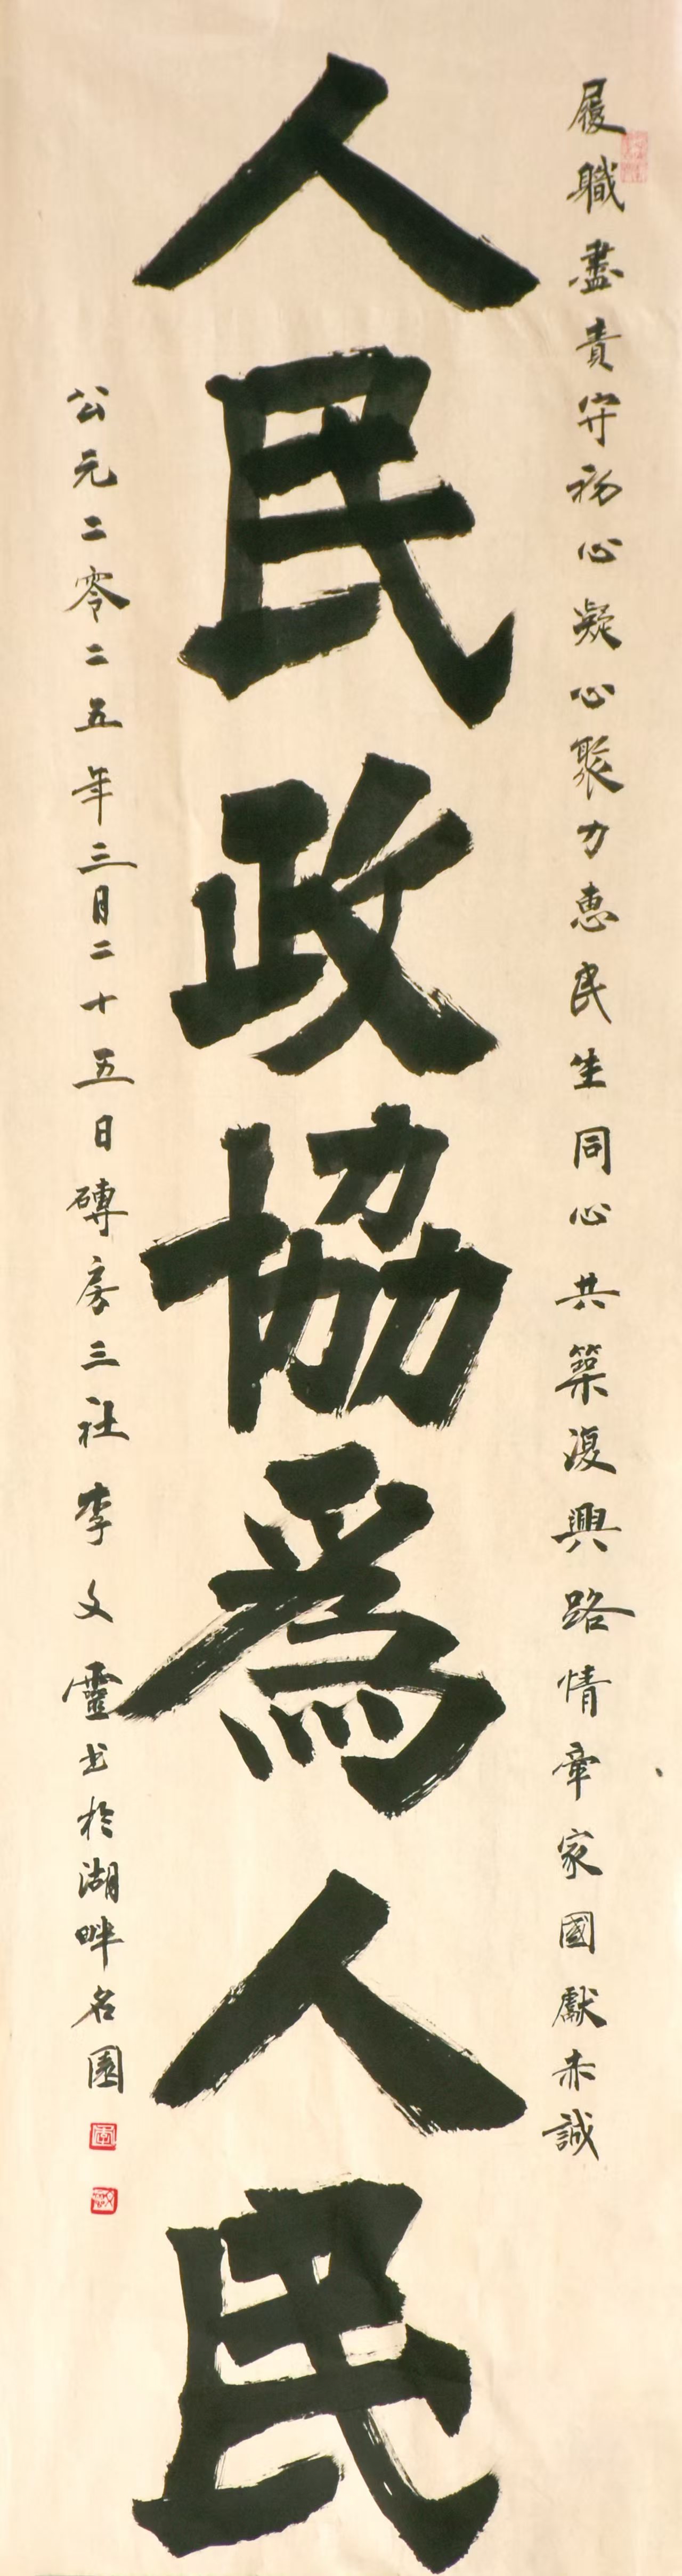 履職盡責守初心凝心聚力惠民生同心共築復興路情牽家國獻赤誠
人民政協爲人民
公元二零二五年三月二十五日磚房三社李文靈书於湖畔名園